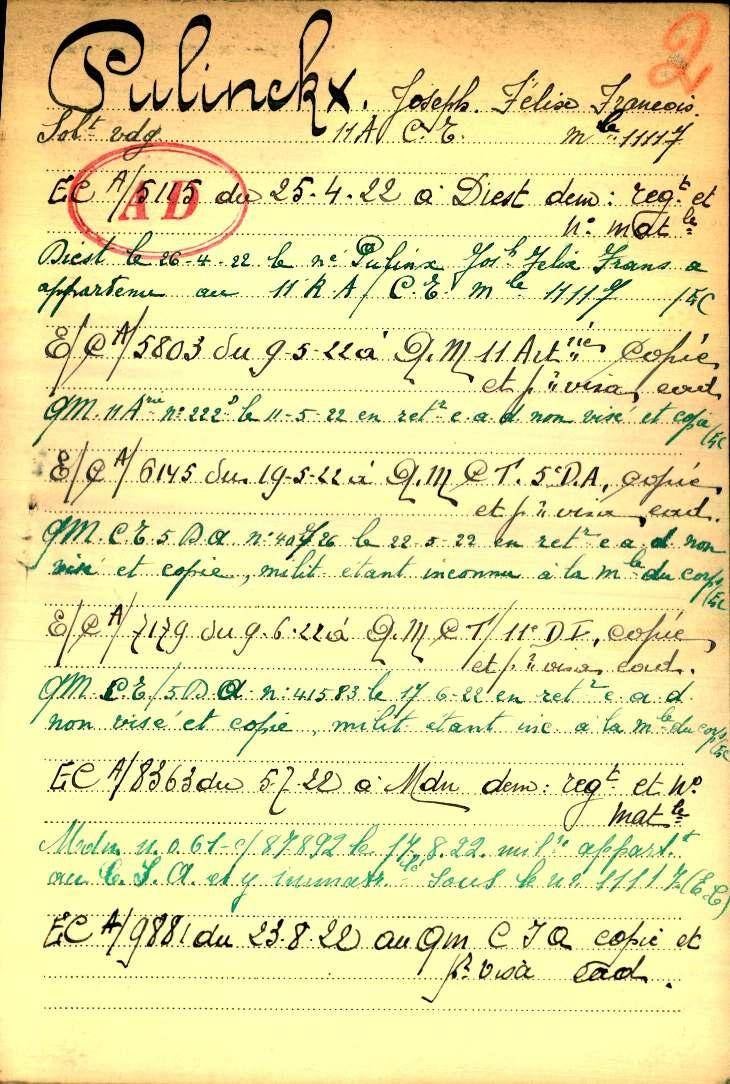 2
Pulinckx. Joseph. Félix François.
Solt vdg 11 A C.E. mle 11117
EC A/5115 du 25-4-22 à Diest dem: regt et
AD
n° matle
Diest le 26-4-22 le né Pulinx Josh Felix Frans a
appartenu au 11 R A / C.E. mle 11117 /EC
E/C A/5803 du 9-5-22 à Q.M 11 Artrie, copie
et pr visa, ead.
QM 11 Arie n° 222 le 11-5-22 en retr e.a.d non visé et copie /EC
E/C A/6145 du 19-5-22 à Q.M C T. 5e D.A, copie
et pr visa, ead.
QM. C E 5 D A n° le 22-5-22 en retr e a d non
visé et copie, milit étant inconnu à la mle du corps /EC
E/C A/7179 du 9-6-22 à Q.M C T/11e D I, copie
et pr visa ead.
QM C E/5 D A n: 41583 le 17 6-22 en retr e a d
non visé et copie, milit étant inc. à la mle du corps /EC
EC A/8363 du 5-7-22 à Mdn dem: regt et N°
matle
Mdn n. 0.61-c/87892 le 17.8.22. milre appart.t
au et y immatr.lé sous le n° 11117 (E.C)
EC A/9881 du 23-8-22 au QM C copie et
pr visà ead.